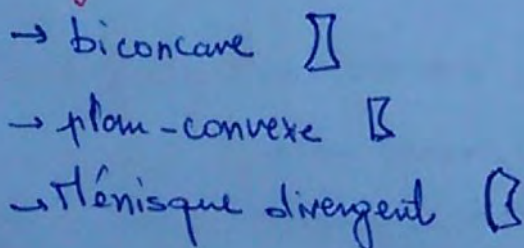 → biconcave
→ plan-convexe
→ Ménisque divergent